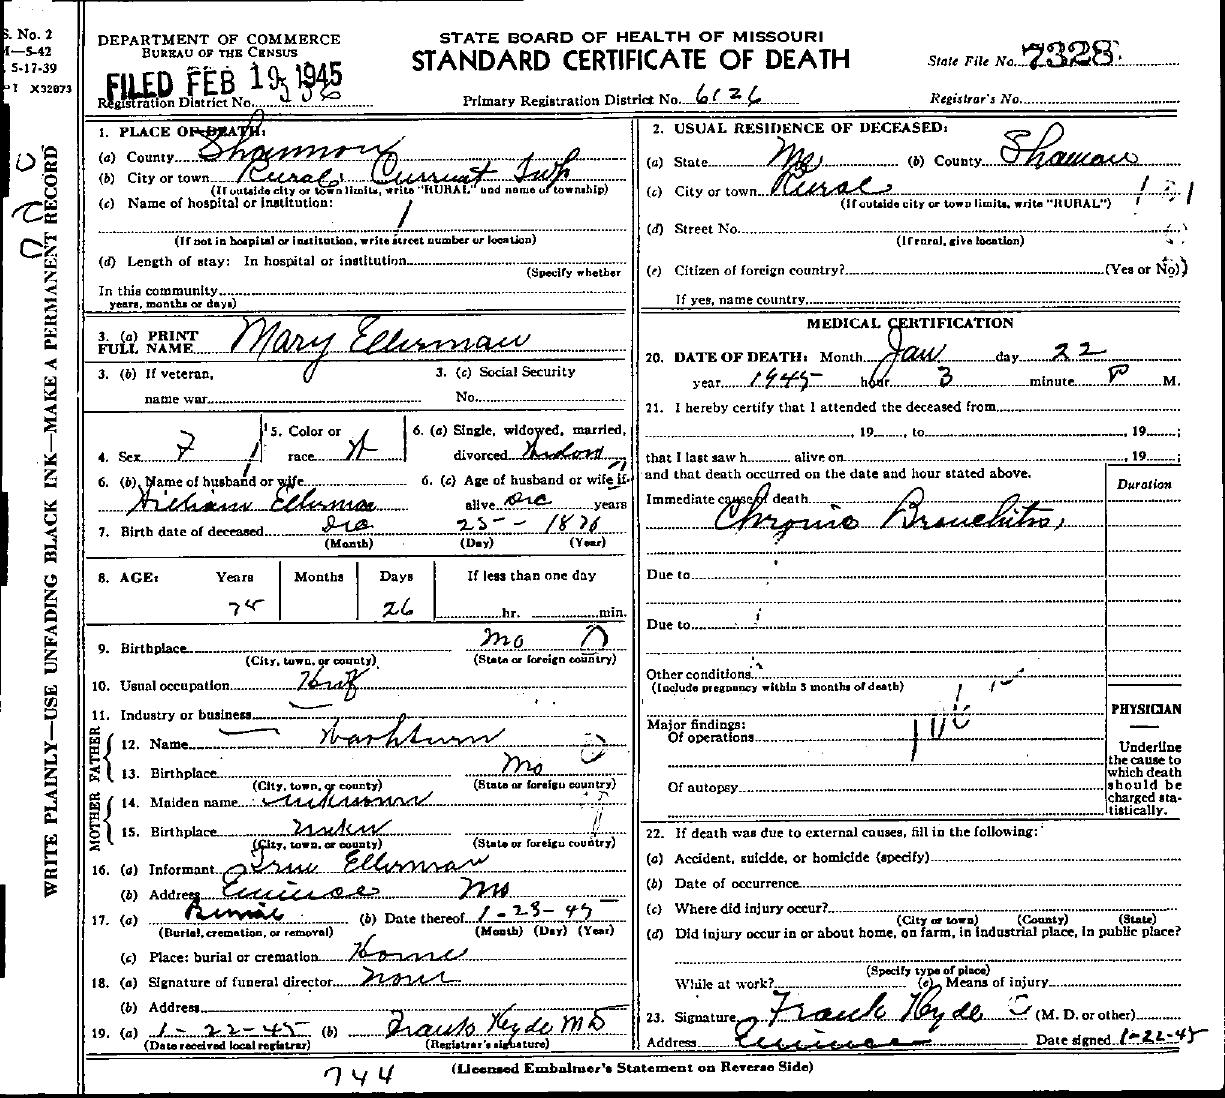 S. No. 2
M—5-42
5-17-39
X32873
WRITE PLAINLY—USE UNFADING BLACK INK—MAKE A PERMANENT RECORD
DEPARTMENT OF COMMERCE
BUREAU OF THE CENSUS
FILED FEB 19 1945
Registration District No.
STATE BOARD OF HEALTH OF MISSOURI
STANDARD CERTIFICATE OF DEATH
Primary Registration District No. 6126
State File No. 7328
Registrar's No.
1. PLACE OF DEATH:
(a) County Shannon
(b) City or town Rural Current Twp
(If outside city or town limits, write "RURAL" and name of township)
(c) Name of hospital or institution:
(If not in hospital or institution, write street number or location)
(d) Length of stay: In hospital or institution
(Specify whether
In this community
years, months or days)
2. USUAL RESIDENCE OF DECEASED:
(a) State Mo (b) County Shannon
(c) City or town Rural
(If outside city or town limits, write "RURAL")
(d) Street No.
(If rural, give location)
(e) Citizen of foreign country? (Yes or No)
If yes, name country
3. (a) PRINT FULL NAME Mary Ellerman
3. (b) If veteran, name war
3. (c) Social Security No.
4. Sex F
5. Color or race W
6. (a) Single, widowed, married, divorced Widow
6. (b) Name of husband or wife William Ellerman
6. (c) Age of husband or wife if alive Dec years
7. Birth date of deceased Dec 25 - 18
(Month) (Day) (Year)
8. AGE: Years Months Days If less than one day
74 26 hr. min.
9. Birthplace Mo
(City, town, or county) (State or foreign country)
10. Usual occupation
11. Industry or business
FATHER
12. Name Washburn
13. Birthplace Mo
(City, town, or county) (State or foreign country)
MOTHER
14. Maiden name unknown
15. Birthplace
(City, town, or county) (State or foreign country)
16. (a) Informant Ellerman
(b) Address Eminence Mo
17. (a) Burial (b) Date thereof 1-23-45
(Burial, cremation, or removal) (Month) (Day) (Year)
(c) Place: burial or cremation Horne
18. (a) Signature of funeral director None
(b) Address
19. (a) 1-22-45 (b) Frank Hyde MD
(Date received local registrar) (Registrar's signature)
MEDICAL CERTIFICATION
20. DATE OF DEATH: Month Jan day 22
year 1945 hour 3 minute P M.
21. I hereby certify that I attended the deceased from
, 19 , to , 19 ;
that I last saw h alive on , 19 ;
and that death occurred on the date and hour stated above.
Duration
Immediate cause of death
Chronic Bronchitis,
Due to
Due to
Other conditions
(Include pregnancy within 3 months of death)
Major findings:
Of operations
Of autopsy
PHYSICIAN
Underline
the cause to
which death
should be
charged sta-
tistically.
22. If death was due to external causes, fill in the following:
(a) Accident, suicide, or homicide (specify)
(b) Date of occurrence
(c) Where did injury occur?
(City or town) (County) (State)
(d) Did injury occur in or about home, on farm, in industrial place, in public place?
(Specify type of place)
While at work? (e) Means of injury
23. Signature Frank Hyde (M. D. or other)
Address Eminence Date signed 1-22-45
(Licensed Embalmer's Statement on Reverse Side)
744